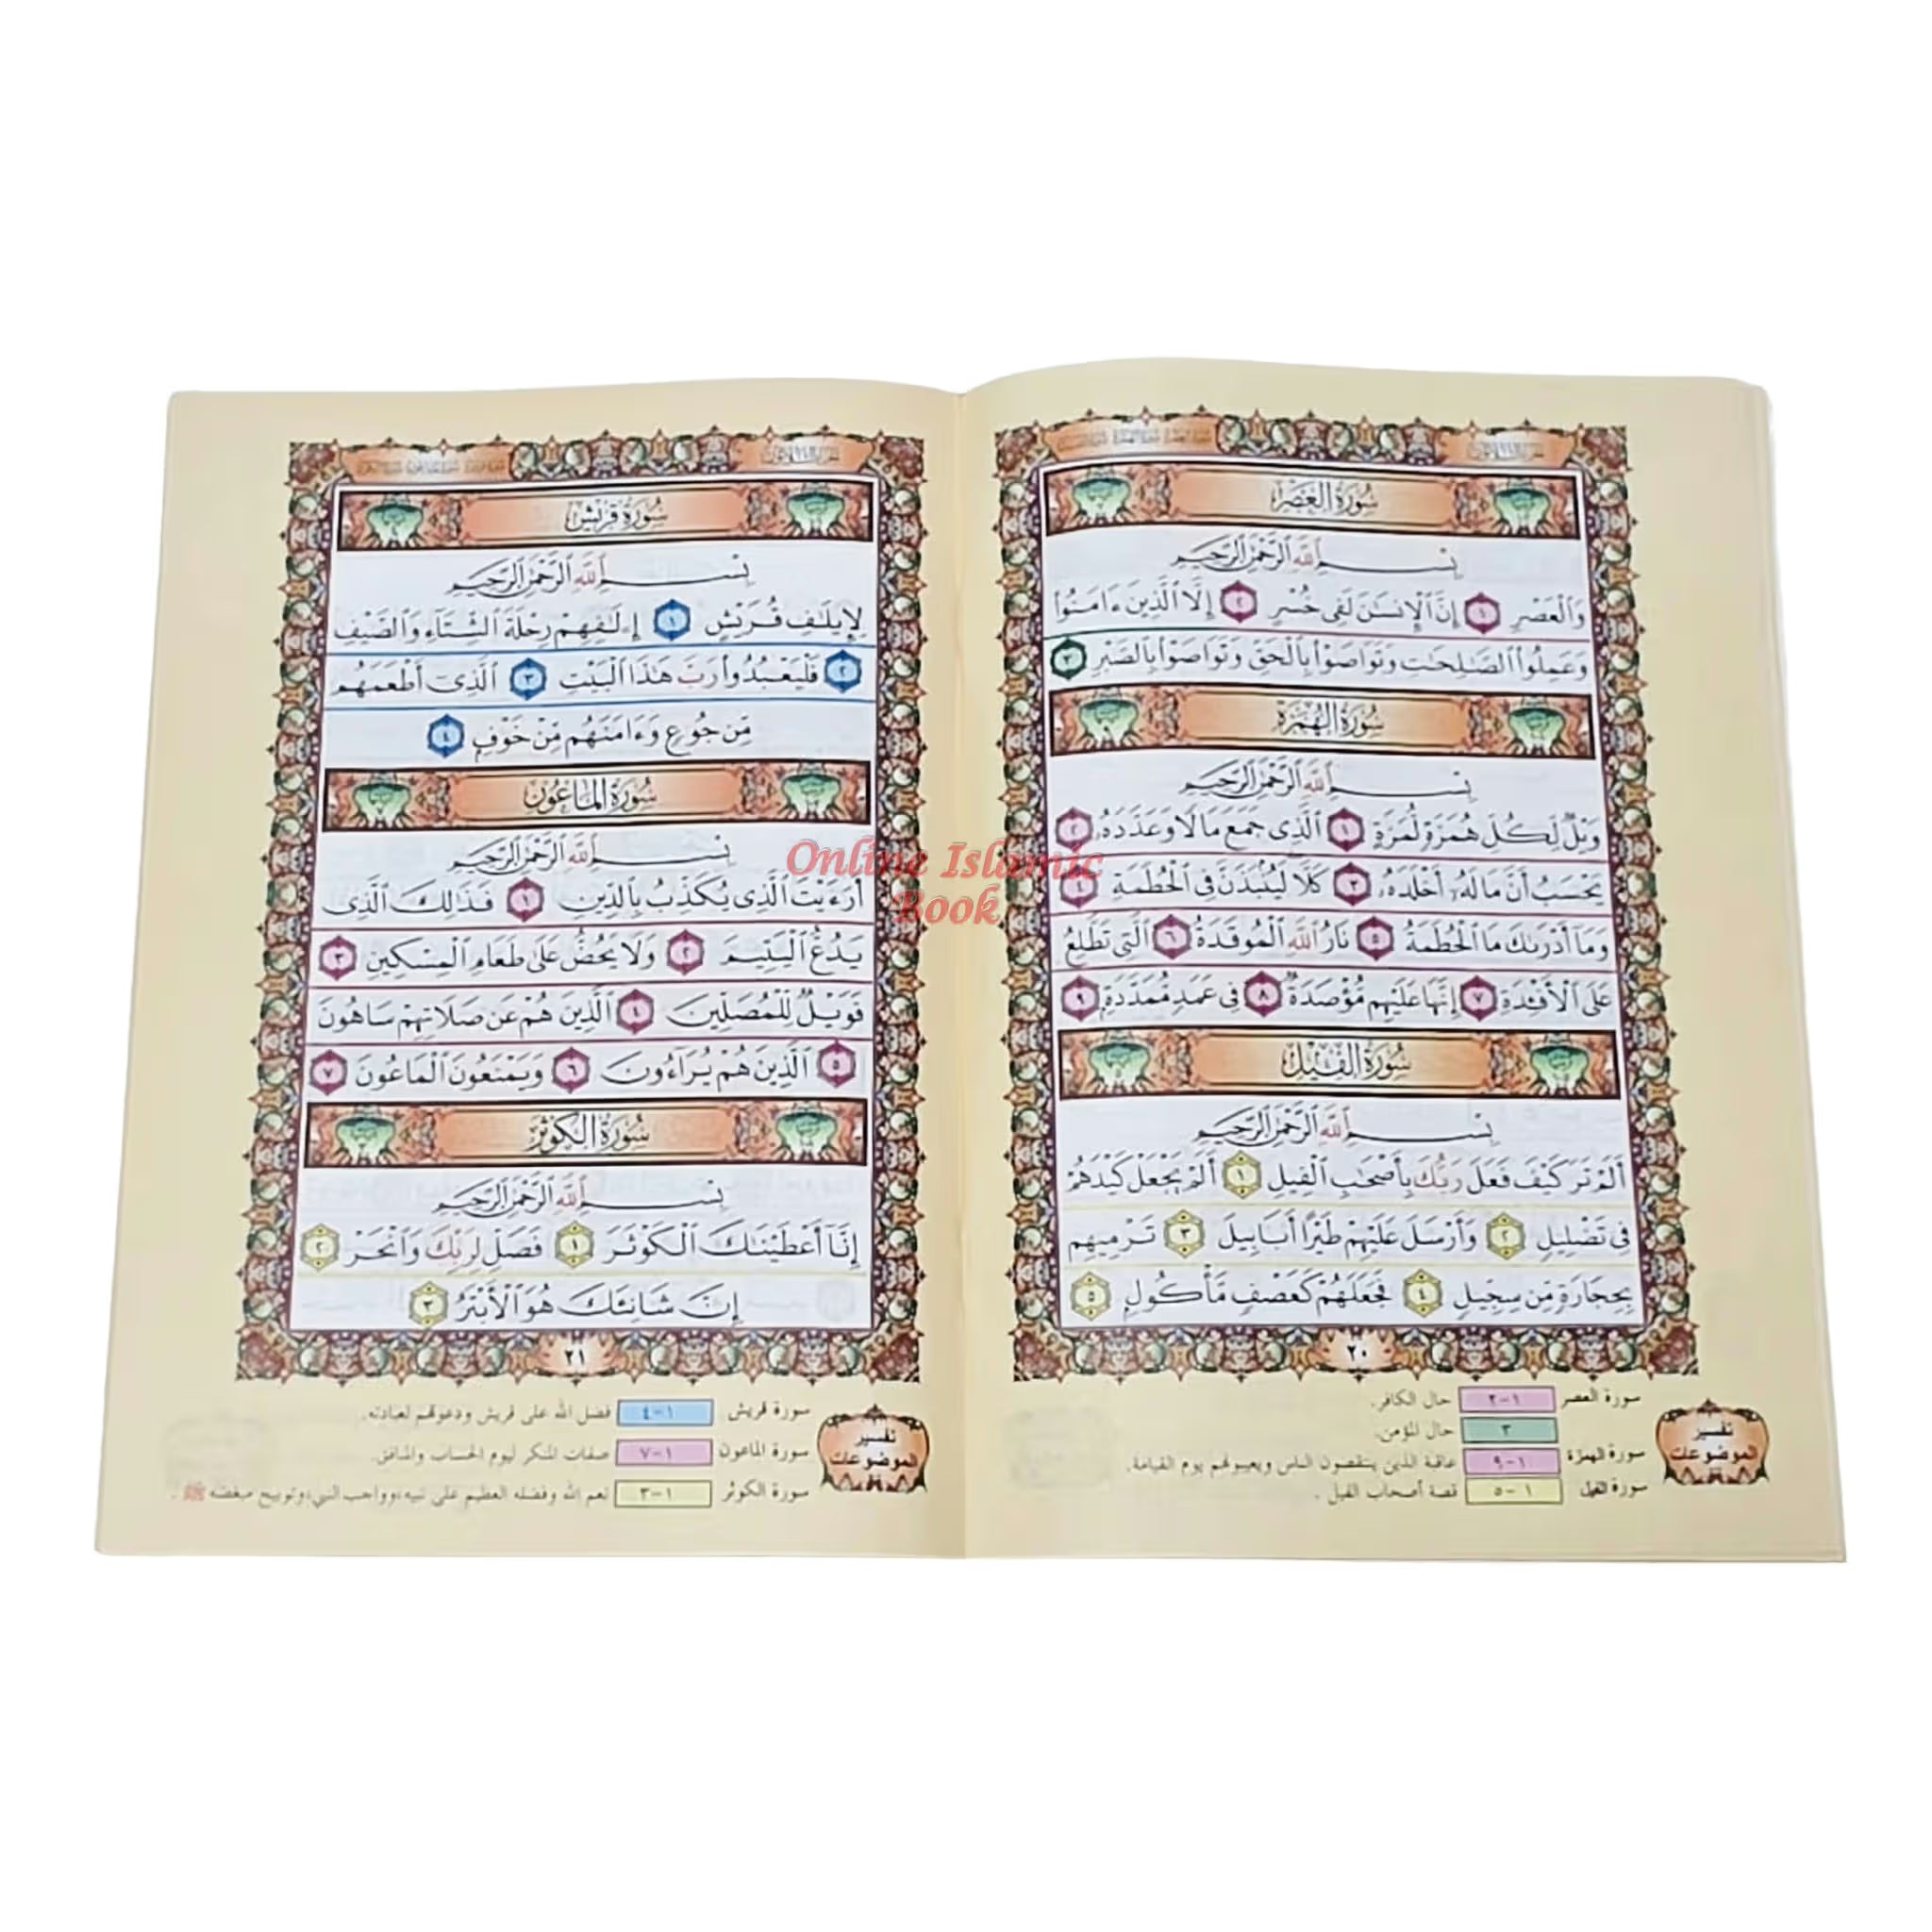 سُورَةُ العَصْرِ
بِسْمِ ٱللَّهِ ٱلرَّحْمَٰنِ ٱلرَّحِيمِ
وَٱلْعَصْرِ ١ إِنَّ ٱلْإِنسَٰنَ لَفِى خُسْرٍ ٢ إِلَّا ٱلَّذِينَ ءَامَنُوا۟
وَعَمِلُوا۟ ٱلصَّٰلِحَٰتِ وَتَوَاصَوْا۟ بِٱلْحَقِّ وَتَوَاصَوْا۟ بِٱلصَّبْرِ ٣
سُورَةُ الهُمَزَةِ
بِسْمِ ٱللَّهِ ٱلرَّحْمَٰنِ ٱلرَّحِيمِ
وَيْلٌ لِّكُلِّ هُمَزَةٍ لُّمَزَةٍ ١ ٱلَّذِى جَمَعَ مَالًا وَعَدَّدَهُۥ ٢
يَحْسَبُ أَنَّ مَالَهُۥٓ أَخْلَدَهُۥ ٣ كَلَّا لَيُنۢبَذَنَّ فِى ٱلْحُطَمَةِ ٤
وَمَآ أَدْرَىٰكَ مَا ٱلْحُطَمَةُ ٥ نَارُ ٱللَّهِ ٱلْمُوقَدَةُ ٦ ٱلَّتِى تَطَّلِعُ
عَلَى ٱلْأَفْـِٔدَةِ ٧ إِنَّهَا عَلَيْهِم مُّؤْصَدَةٌ ٨ فِى عَمَدٍ مُّمَدَّدَةٍۭ ٩
سُورَةُ الفِيلِ
بِسْمِ ٱللَّهِ ٱلرَّحْمَٰنِ ٱلرَّحِيمِ
أَلَمْ تَرَ كَيْفَ فَعَلَ رَبُّكَ بِأَصْحَٰبِ ٱلْفِيلِ ١ أَلَمْ يَجْعَلْ كَيْدَهُمْ
فِى تَضْلِيلٍ ٢ وَأَرْسَلَ عَلَيْهِمْ طَيْرًا أَبَابِيلَ ٣ تَرْمِيهِم
بِحِجَارَةٍ مِّن سِجِّيلٍ ٤ فَجَعَلَهُمْ كَعَصْفٍ مَّأْكُولٍۭ ٥
٢٠
تفسير
الموضوعات
سورة العصر ١-٢ حال الكافر.
٣ حال المؤمن.
سورة الهمزة ١-٩ عاقبة الذين ينتقصون الناس ويعيبونهم يوم القيامة.
سورة الفيل ١-٥ قصة أصحاب الفيل.
سُورَةُ قُرَيْشٍ
بِسْمِ ٱللَّهِ ٱلرَّحْمَٰنِ ٱلرَّحِيمِ
لِإِيلَٰفِ قُرَيْشٍ ١ إِۦلَٰفِهِمْ رِحْلَةَ ٱلشِّتَآءِ وَٱلصَّيْفِ
٢ فَلْيَعْبُدُوا۟ رَبَّ هَٰذَا ٱلْبَيْتِ ٣ ٱلَّذِىٓ أَطْعَمَهُم
مِّن جُوعٍ وَءَامَنَهُم مِّنْ خَوْفٍۭ ٤
سُورَةُ المَاعُونِ
بِسْمِ ٱللَّهِ ٱلرَّحْمَٰنِ ٱلرَّحِيمِ
أَرَءَيْتَ ٱلَّذِى يُكَذِّبُ بِٱلدِّينِ ١ فَذَٰلِكَ ٱلَّذِى
يَدُعُّ ٱلْيَتِيمَ ٢ وَلَا يَحُضُّ عَلَىٰ طَعَامِ ٱلْمِسْكِينِ ٣
فَوَيْلٌ لِّلْمُصَلِّينَ ٤ ٱلَّذِينَ هُمْ عَن صَلَاتِهِمْ سَاهُونَ
٥ ٱلَّذِينَ هُمْ يُرَآءُونَ ٦ وَيَمْنَعُونَ ٱلْمَاعُونَ ٧
سُورَةُ الكَوْثَرِ
بِسْمِ ٱللَّهِ ٱلرَّحْمَٰنِ ٱلرَّحِيمِ
إِنَّآ أَعْطَيْنَٰكَ ٱلْكَوْثَرَ ١ فَصَلِّ لِرَبِّكَ وَٱنْحَرْ ٢
إِنَّ شَانِئَكَ هُوَ ٱلْأَبْتَرُ ٣
٢١
تفسير
الموضوعات
سورة قريش ١-٤ فضل الله على قريش ودعوتهم لعبادته.
سورة الماعون ١-٧ صفات المنكر ليوم الحساب والمنافق.
سورة الكوثر ١-٣ نعم الله وفضله العظيم على نبيه، وواجب النبي، وتوبيخ مبغضه ﷺ.
Online Islamic
Book